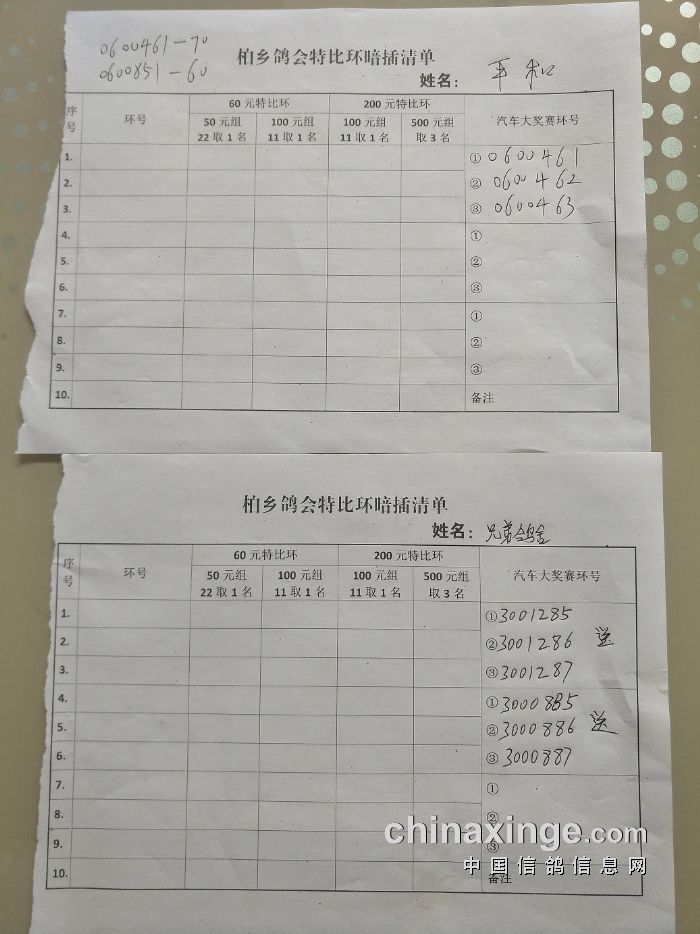 0600461-70
0600851-60
柏乡鸽会特比环暗插清单
姓名: 平和
序号 环号 60元特比环 200元特比环 汽车大奖赛环号
50元组 100元组 100元组 500元组
22取1名 11取1名 11取1名 取3名
1. ①0600461
2. ②0600462
3. ③0600463
4. ①
5. ②
6. ③
7. ①
8. ②
9. ③
10. 备注
柏乡鸽会特比环暗插清单
姓名: 兄弟鸽舍
序号 环号 60元特比环 200元特比环 汽车大奖赛环号
50元组 100元组 100元组 500元组
22取1名 11取1名 11取1名 取3名
1. ①3001285
2. ②3001286 送
3. ③3001287
4. ①3000885
5. ②3000886 送
6. ③3000887
7. ①
8. ②
9. ③
10. 备注
chinaxinge.com
中国信鸽信息网